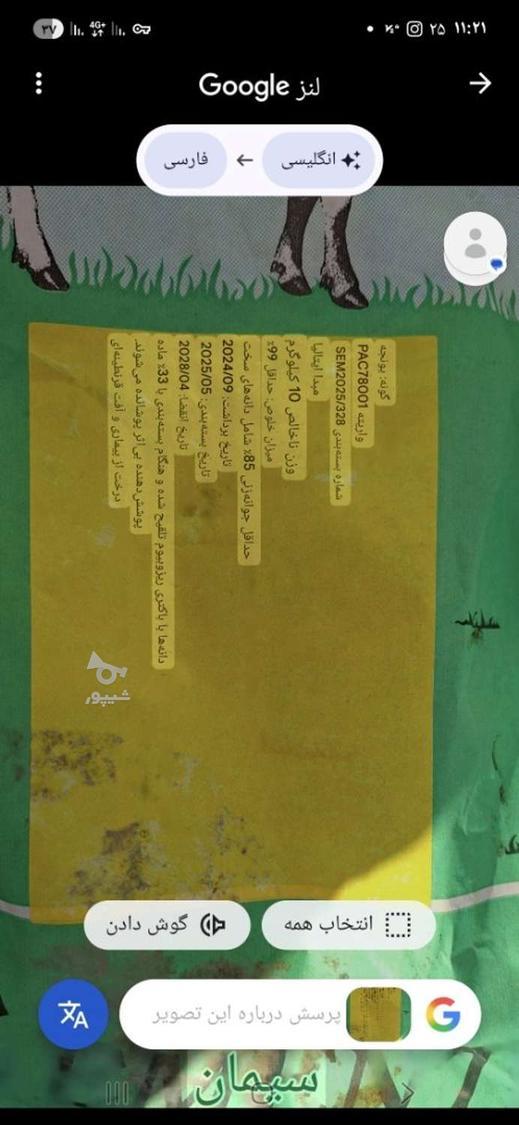 ۱۱:۲۱ ۲۵
4G+ ۳۷
لنز Google
انگلیسی ← فارسی
گونه: یونجه
واریته PAC78001
شماره بسته‌بندی SEM2025/328
مبدا ایتالیا
وزن ناخالص 10 کیلوگرم
میزان خلوص: حداقل 99٪
حداقل جوانه‌زنی 85٪ شامل دانه‌های سخت
تاریخ برداشت: 2024/09
تاریخ بسته‌بندی: 2025/05
تاریخ انقضا: 2028/04
دانه‌ها با باکتری ریزوبیوم تلقیح شده و هنگام بسته‌بندی با 33٪ ماده
پوشش‌دهنده بی‌اثر پوشانده می‌شوند.
درخت از بیماری و آفت قرنطینه‌ای
شیپور
انتخاب همه
گوش دادن
پرسش درباره این تصویر
سیمان